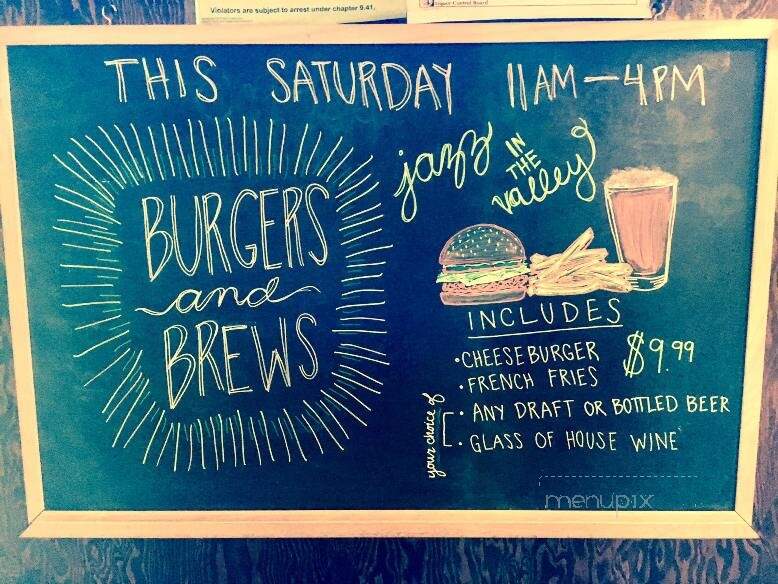 Violators are subject to arrest under chapter 9.41.
THIS SATURDAY 11AM—4PM
BURGERS
and
BREWS
jazz IN
THE
valley
INCLUDES
• CHEESEBURGER $9.99
• FRENCH FRIES
your choice of
• ANY DRAFT OR BOTTLED BEER
• GLASS OF HOUSE WINE
menupix